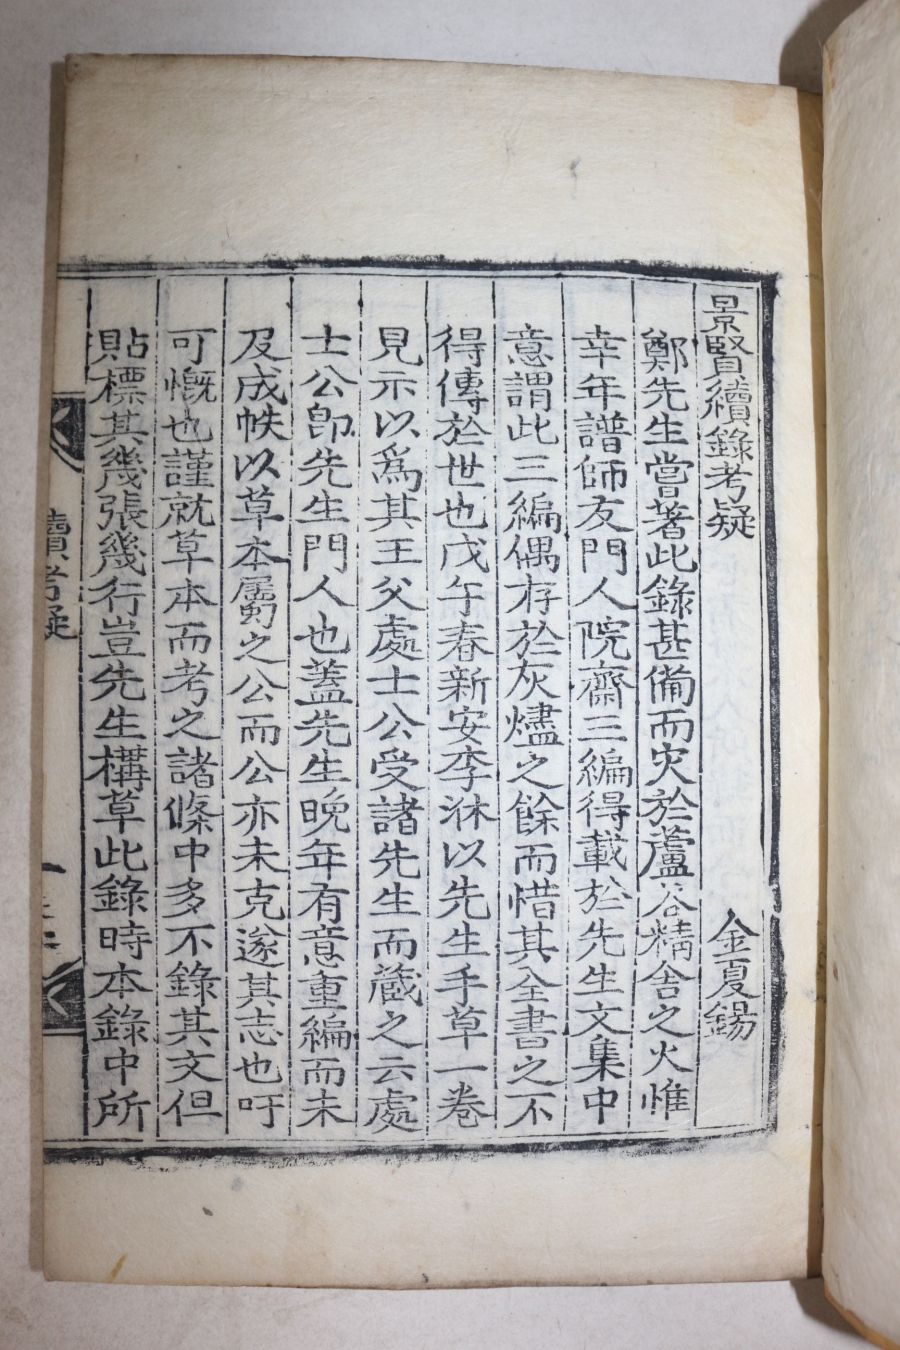 景賢續錄考疑
金夏錫
鄭先生嘗著此錄甚備而灾於蘆谷精舍之火惟
幸年譜師友門人院齋三編得載於先生文集中
意謂此三編偶存於灰燼之餘而惜其全書之不
得傳於世也戊午春新安李沐以先生手草一卷
見示以爲其王父處士公受諸先生而藏之云處
士公卽先生門人也蓋先生晩年有意重編而未
及成帙以草本屬之公而公亦未克遂其志也吁
可慨也謹就草本而考之諸條中多不錄其文但
貼標其幾張幾行豈先生構草此錄時本錄中所
續考疑